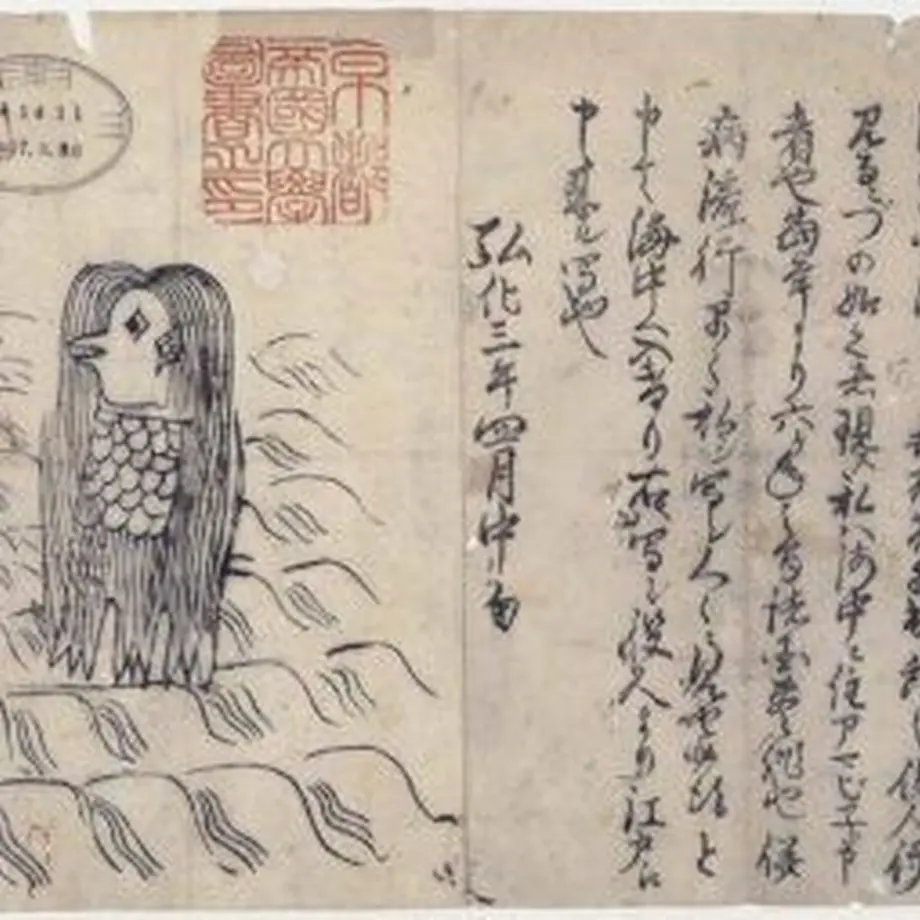 見るニづの如之者現ス私ハ海中ニ住アマビヱト申
者也當年より六ヶ年之間諸国豊作也併
病流行早々私ヲ写シ人々ニ見セ候得と
申て海中へ入けり右写シ役人より江戸え
申来ル写也
弘化三年四月中旬
京都
帝國大學
圖書之印